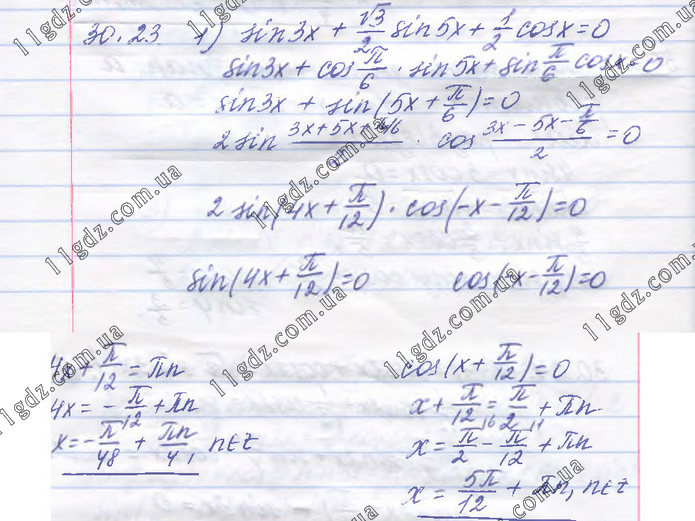 30.23 1) sin3x + √3/2 sin5x + 1/2 cosx = 0
sin3x + cos π/6 · sin5x + sin π/6 cosx = 0
sin3x + sin(5x + π/6) = 0
2 sin (3x + 5x + π/6)/2 · cos (3x − 5x − π/6)/2 = 0
2 sin(4x + π/12) · cos(−x − π/12) = 0
sin(4x + π/12) = 0 cos(−x − π/12) = 0
4x + π/12 = πn cos(x + π/12) = 0
4x = − π/12 + πn x + π/12 = π/2 + πn
x = − π/48 + πn/4, n∈Z x = π/2 − π/12 + πn
x = 5π/12 + πn, n∈Z
11gdz.com.ua
11gdz.com.ua
11gdz.com.ua
11gdz.com.ua
11gdz.com.ua
11gdz.com.ua
11gdz.com.ua
11gdz.com.ua
11gdz.com.ua